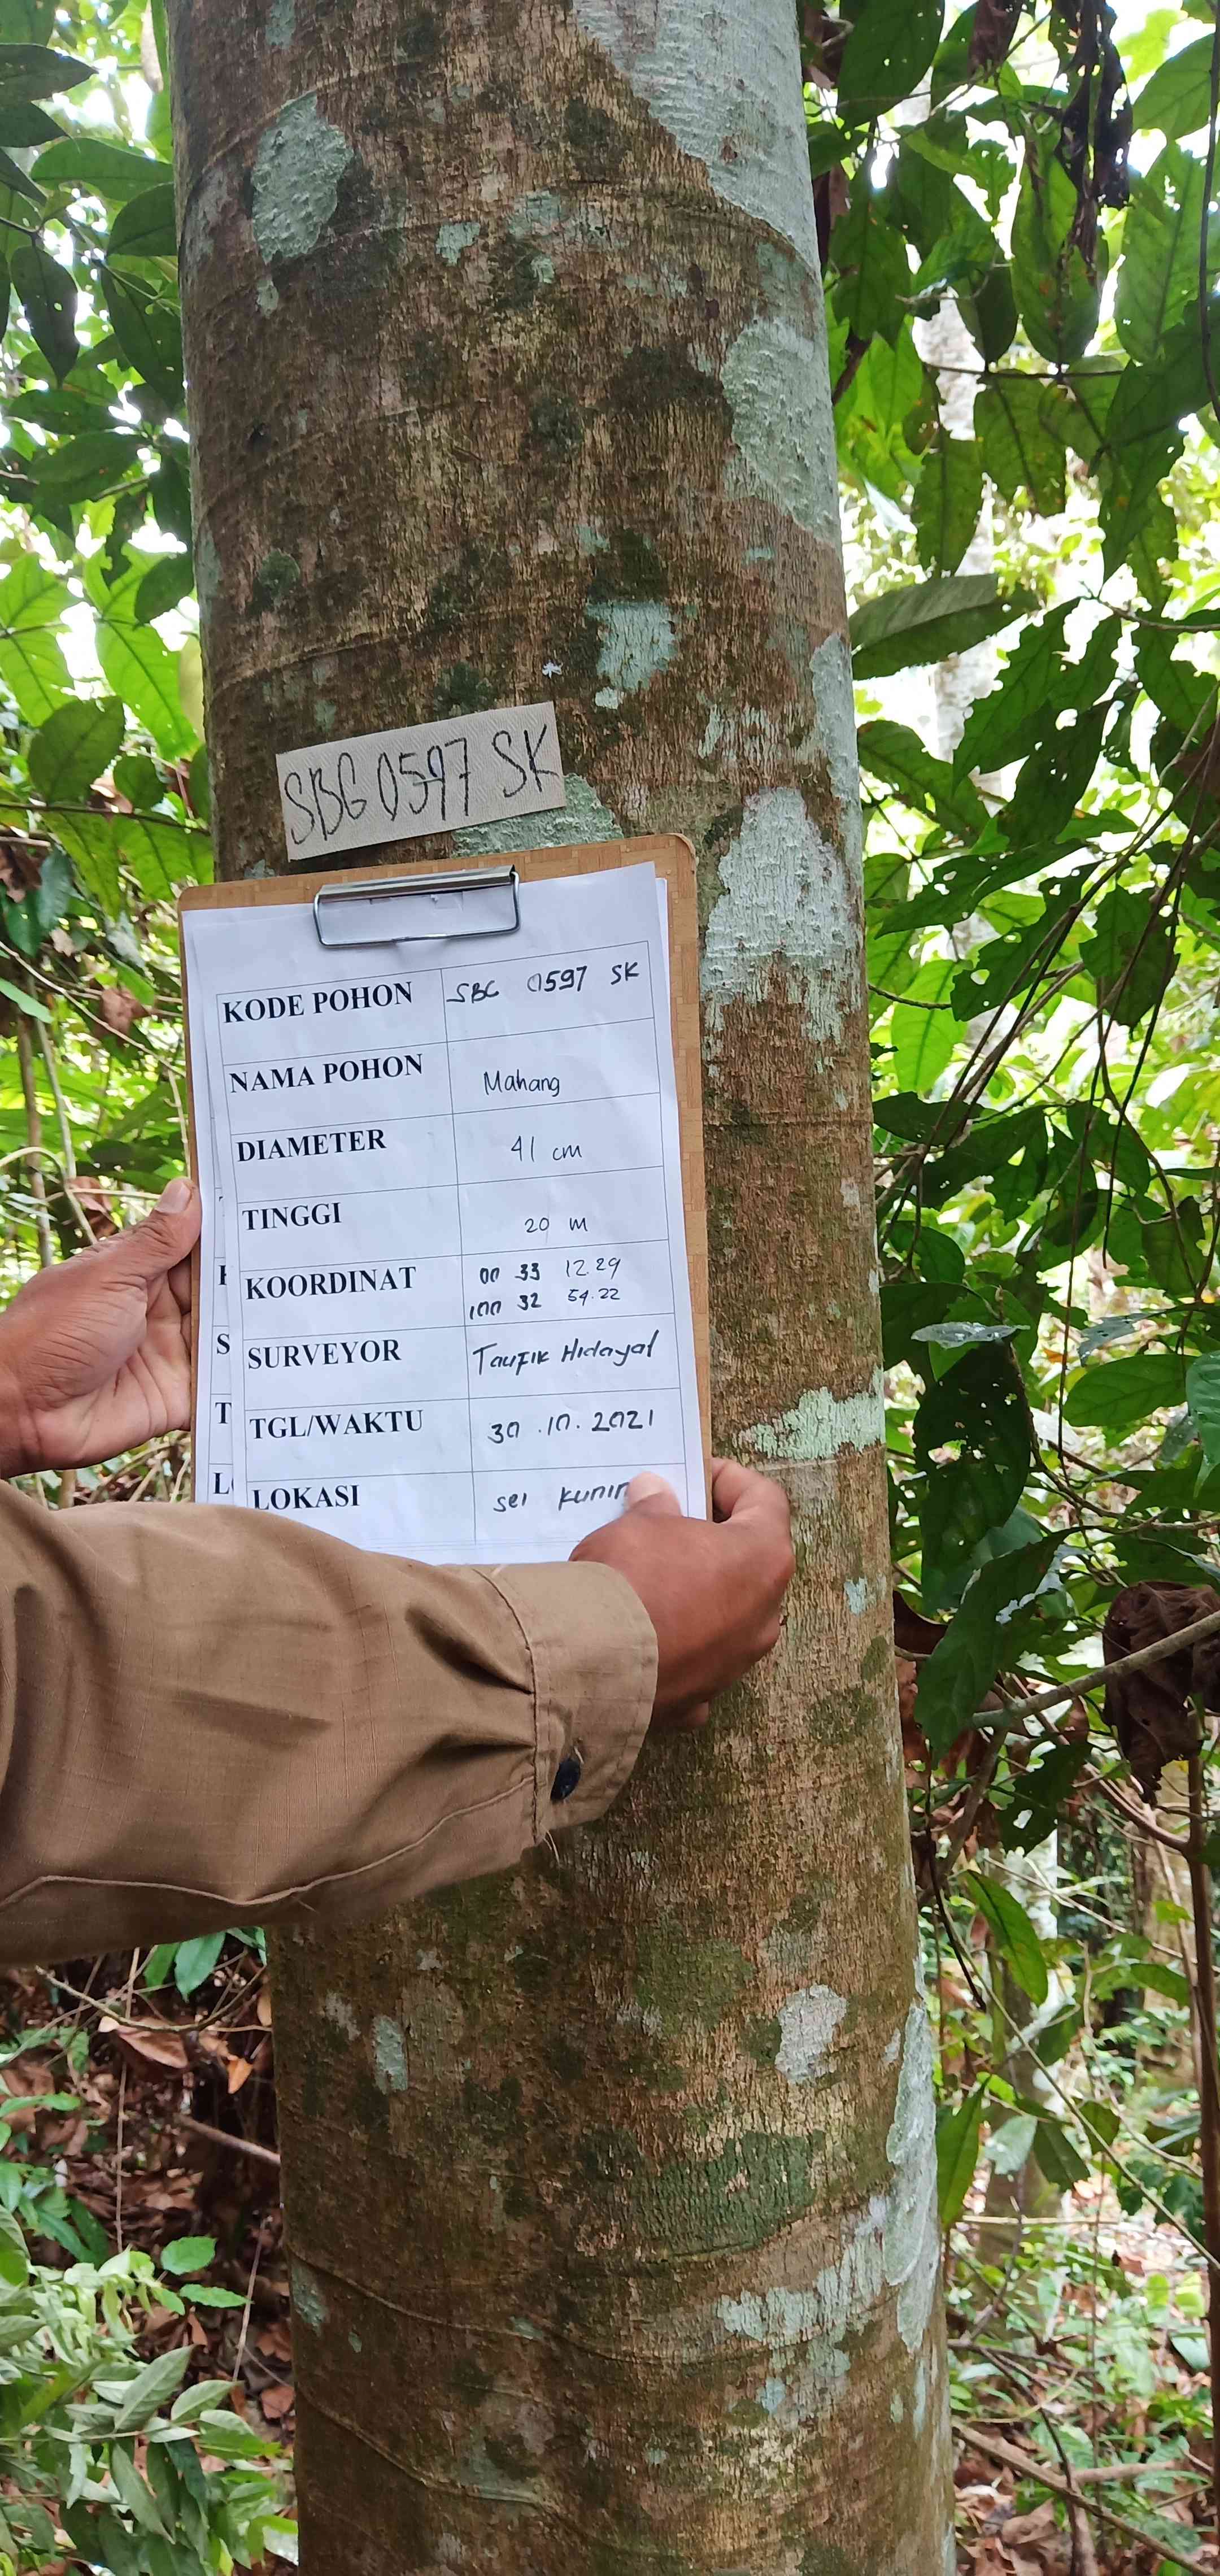 SBG 0597 SK
KODE POHON SBG 0597 SK
NAMA POHON Mahang
DIAMETER 41 cm
TINGGI 20 m
KOORDINAT 00 33 12.29
100 32 54.22
SURVEYOR Taufik Hidayat
TGL/WAKTU 30.10.2021
LOKASI sei